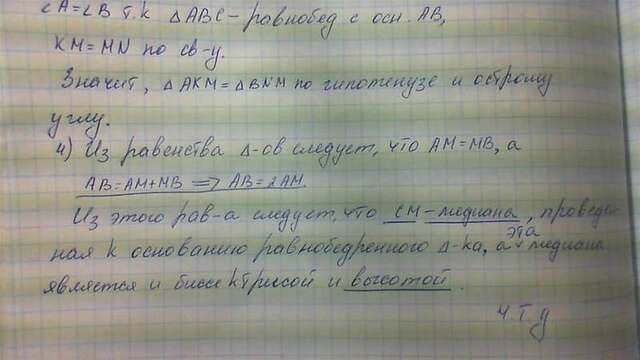 ∠A=∠B т.к ΔABC-равнобед с осн. AB,
KM=MN по св-у.
Значит, ΔAKM=ΔBNM по гипотенузе и острому
углу.
4) Из равенства Δ-ов следует, что AM=MB, а
AB=AM+MB ⟹ AB=2AM.
Из этого рав-а следует, что CM-медиана, проведен-
ная к основанию равнобедренного Δ-ка, а эта медиана
является и биссектриссой и высотой.
ч.т.д